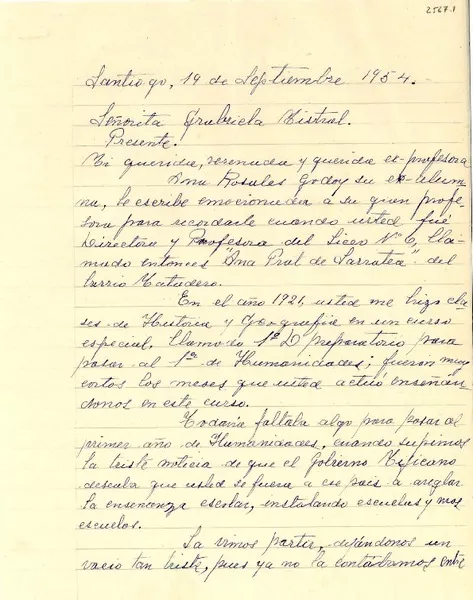 2567.1
Santiago, 19 de Septiembre 1954.
Señorita Grabriela Mistral.
Presente.
Mi querida, veneruda y querida ex-profesora
Ana Rosales Godoy su ex-alum-
na, le escribe emocionada a su gran profe-
sora para recordarle cuando usted fué
Directora y Profesora del Liceo Nº 6, lla-
mado entonces "Ana Prat de Sarratea" del
barrio Matadero.
En el año 1921, usted me hizo cla-
ses de Historia y Geografía en un curso
especial, llamado 1º D preparatorio para
pasar al 1er de Humanidades; fueron muy
cortos los meses que usted actuó enseñán
donos en este curso.
Todavía faltaba algo para pasar al
primer año de Humanidades, cuando supimos
la triste noticia de que el Gobierno Mejicano
deseaba que usted se fuera a ese país a arreglar
la enseñanza escolar, instalando escuelas y más
escuelas.
La vimos partir, dejándonos un
vacío tan triste, pues ya no la contábamos entre